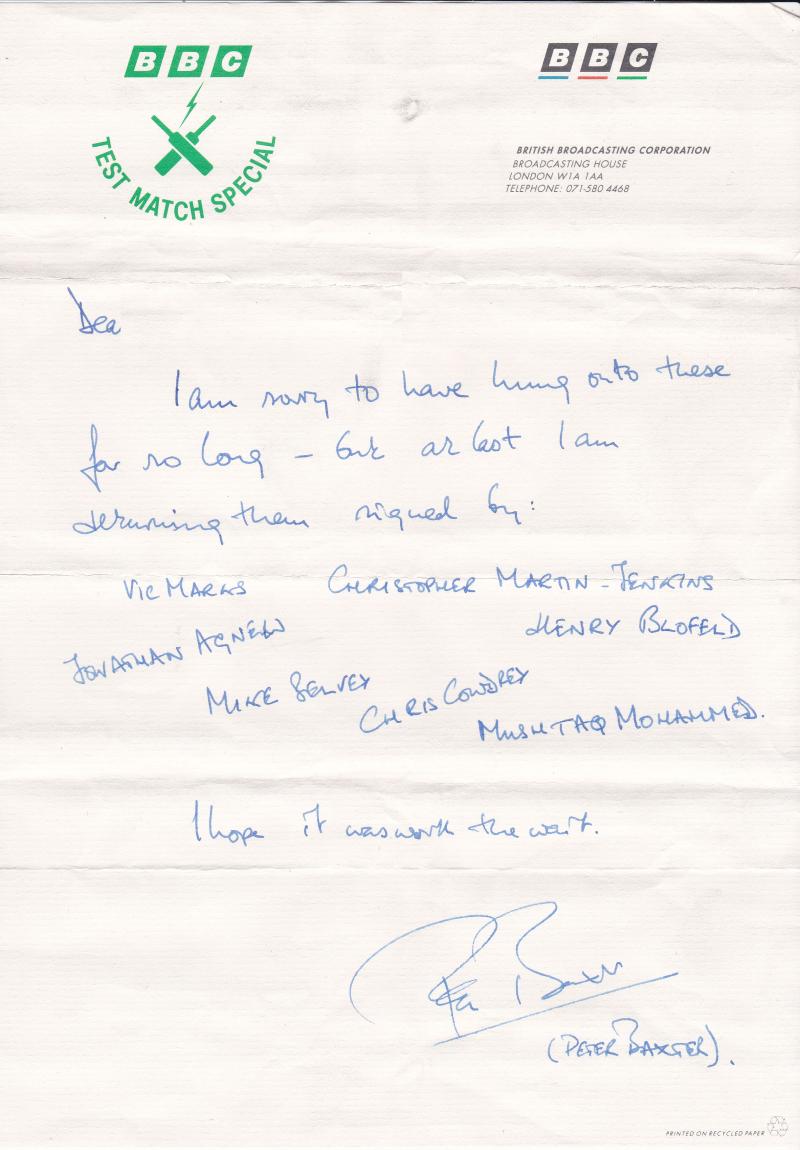 BBC
TEST MATCH SPECIAL
BBC
BRITISH BROADCASTING CORPORATION
BROADCASTING HOUSE
LONDON W1A 1AA
TELEPHONE: 071-580 4468
Dea
I am sorry to have hung onto these
for so long – but at last I am
returning them signed by:
VIC MARKS CHRISTOPHER MARTIN-JENKINS
JONATHAN AGNEW HENRY BLOFELD
MIKE SELVEY CHRIS COWDREY
MUSHTAQ MOHAMMED.
I hope it was worth the wait.
Peter Baxter
(PETER BAXTER).
PRINTED ON RECYCLED PAPER